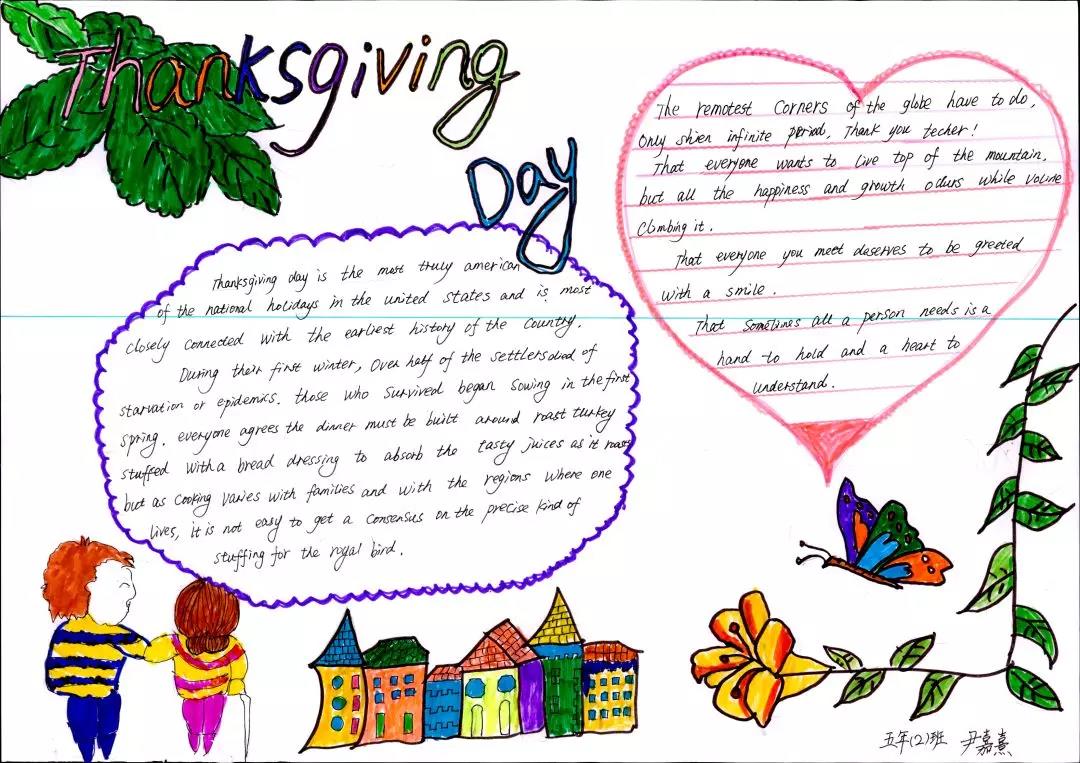 Thanksgiving
Day
Thanksgiving day is the most truly american
of the national holidays in the united states and is most
closely connected with the earliest history of the country.
During their first winter, Over half of the settlersdied of
starvation or epidemics. those who Survived began Sowing in the first
spring. everyone agrees the dinner must be built around roast turkey
stuffed with a bread dressing to absorb the tasty juices as it roast
but as Cooking varies with families and with the regions where one
lives, it is not easy to get a consensus on the precise kind of
stuffing for the royal bird.
The remotest Corners of the globe have to do,
Only infinite period. Thank you techer!
That everyone wants to live top of the mountain,
but all the happiness and growth while
Climbing it.
That everyone you meet deserves to be greeted
with a smile.
That Sometimes all a person needs is a
hand to hold and a heart to
understand.
五年(2)班 尹嘉熹